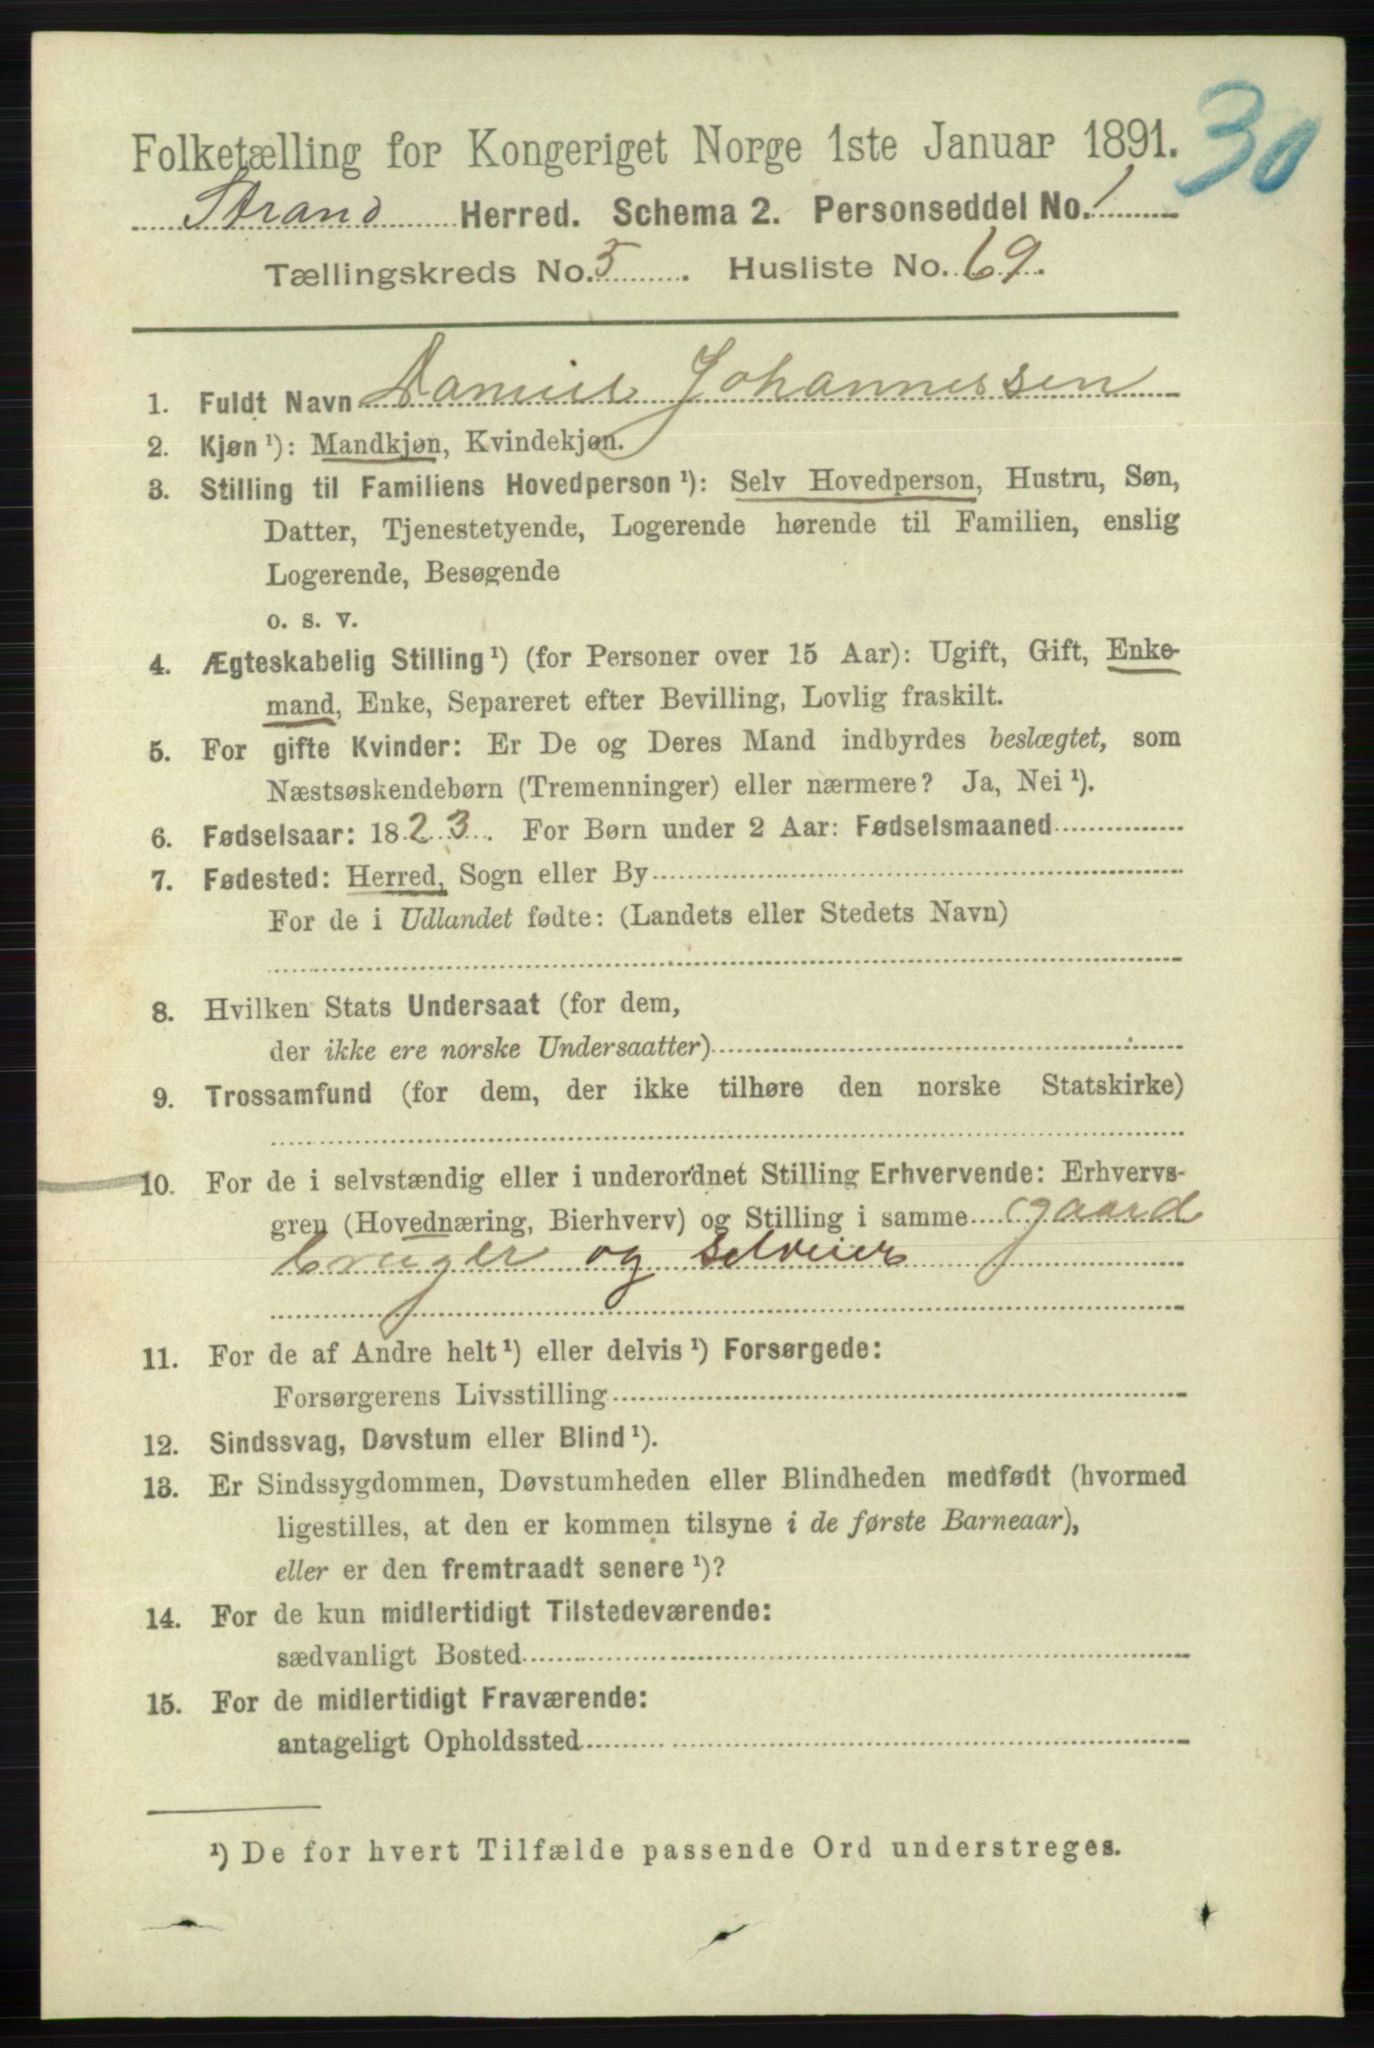 30
Folketælling for Kongeriget Norge 1ste Januar 1891.
Strand Herred. Schema 2. Personseddel No. 1
Tællingskreds No. 5. Husliste No. 69.
1. Fuldt Navn Daniel Johannessen
2. Kjøn ¹): Mandkjøn, Kvindekjøn.
3. Stilling til Familiens Hovedperson ¹): Selv Hovedperson, Hustru, Søn,
Datter, Tjenestetyende, Logerende hørende til Familien, enslig
Logerende, Besøgende
o. s. v.
4. Ægteskabelig Stilling ¹) (for Personer over 15 Aar): Ugift, Gift, Enke-
mand, Enke, Separeret efter Bevilling, Lovlig fraskilt.
5. For gifte Kvinder: Er De og Deres Mand indbyrdes beslægtet, som
Næstsøskendebørn (Tremenninger) eller nærmere? Ja, Nei ¹).
6. Fødselsaar: 1823. For Børn under 2 Aar: Fødselsmaaned
7. Fødested: Herred, Sogn eller By
For de i Udlandet fødte: (Landets eller Stedets Navn)
8. Hvilken Stats Undersaat (for dem,
der ikke ere norske Undersaatter)
9. Trossamfund (for dem, der ikke tilhøre den norske Statskirke)
10. For de i selvstændig eller i underordnet Stilling Erhvervende: Erhvervs-
gren (Hovednæring, Bierhverv) og Stilling i samme gaard
bruger og selveier
11. For de af Andre helt ¹) eller delvis ¹) Forsørgede:
Forsørgerens Livsstilling
12. Sindssvag, Døvstum eller Blind ¹).
13. Er Sindssygdommen, Døvstumheden eller Blindheden medfødt (hvormed
ligestilles, at den er kommen tilsyne i de første Barneaar),
eller er den fremtraadt senere ¹)?
14. For de kun midlertidigt Tilstedeværende:
sædvanligt Bosted
15. For de midlertidigt Fraværende:
antageligt Opholdssted
¹) De for hvert Tilfælde passende Ord understreges.